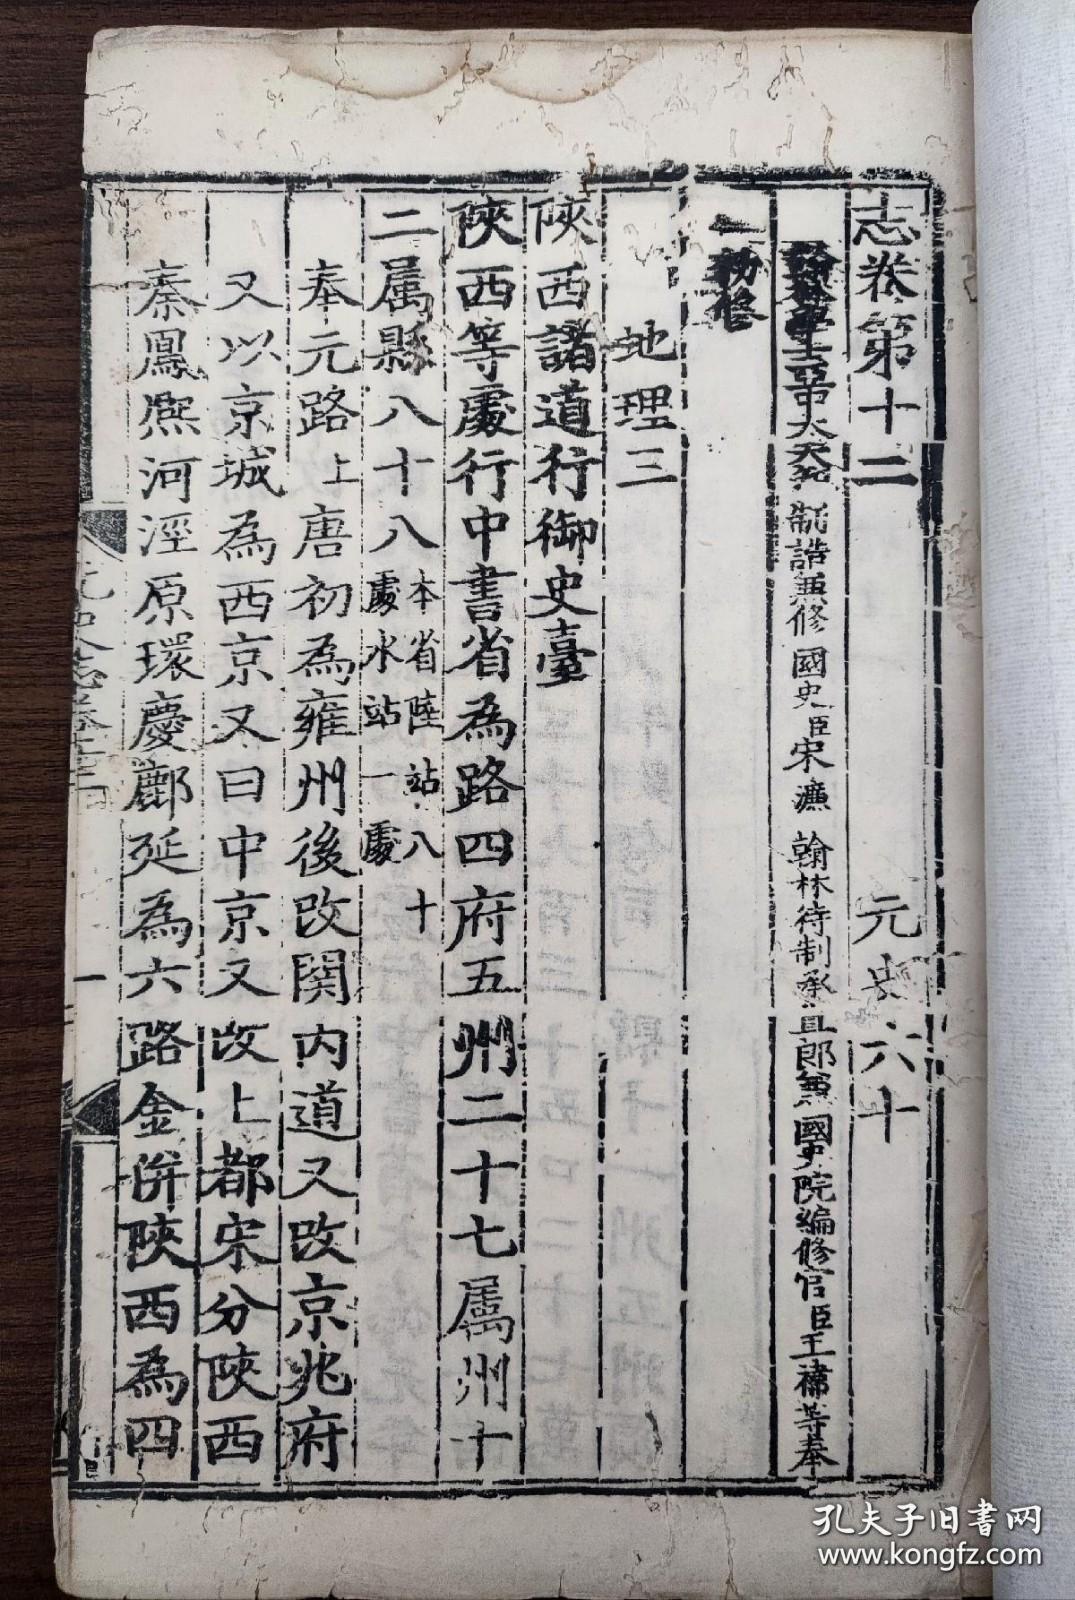 志卷第十二 元史六十
學士亞中大夫知 制誥兼修 國史臣宋濂 翰林待制承直郎兼 國史院編修官臣王禕等奉
勑修
地理三
陝西諸道行御史臺
陝西等處行中書省為路四府五州二十七属州十
二属縣八十八本省陸站八十處水站一處
奉元路上唐初為雍州後改關內道又改京兆府
又以京城為西京又曰中京又改上都宋分陝西
秦鳳熙河涇原環慶鄜延為六路金併陝西為四
元史志卷十二
一
孔夫子旧书网
www.kongfz.com